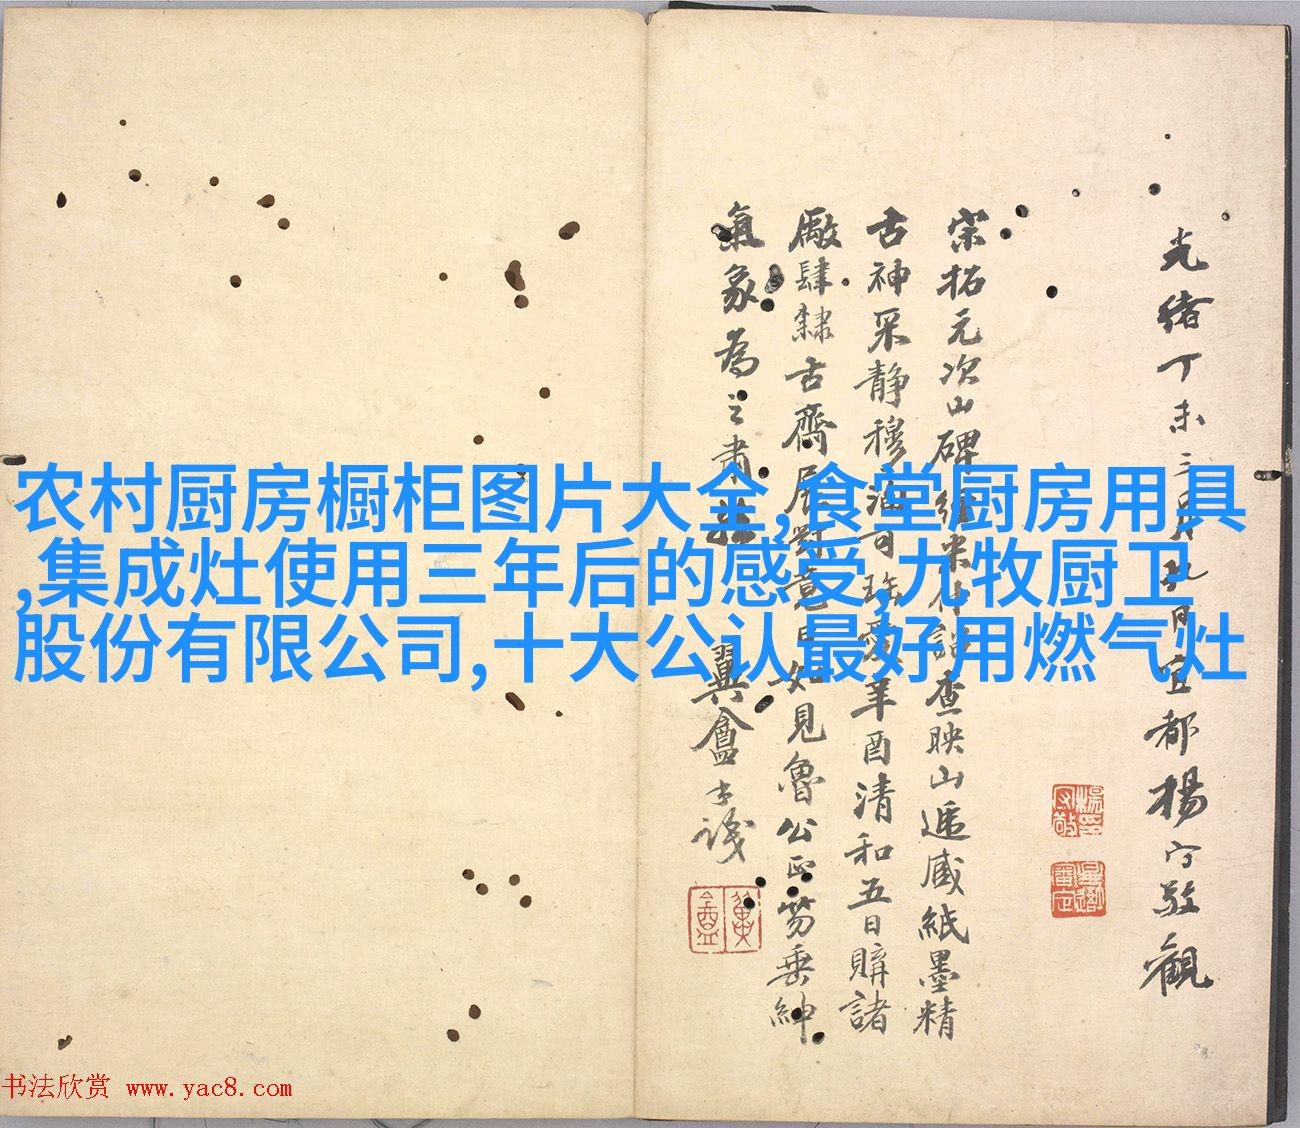 农村厨房橱柜图片大全,食堂厨房用具
,集成灶使用三年后的感受,九牧厨卫
股份有限公司,十大公认最好用燃气灶
光緒丁未三月九日宜都楊守敬觀
宋拓元次山碑查映山遞藏紙墨精
古神采靜穆可珍愛辛酉清和五日購諸
廠肆隸古齋展對如見魯公正笏垂紳
氣象為之肅翼盦識
书法欣赏 www.yac8.com